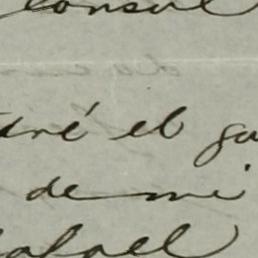 Consul
dré el gu
de mi
Rafael